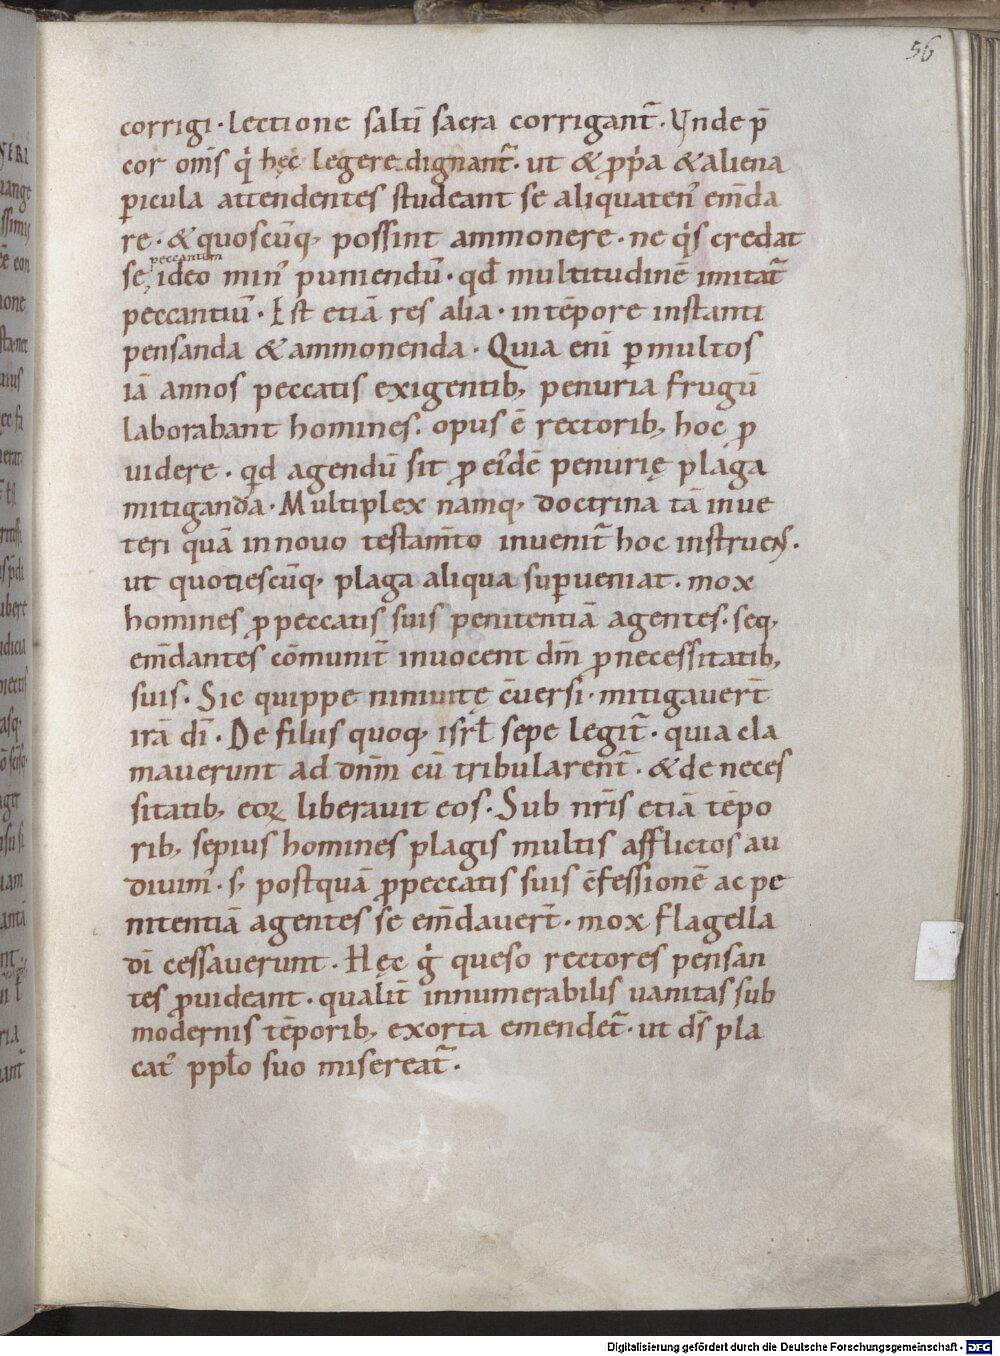 56
corrigi · Lectione saltī sacra corrigant᷑ · Unde p̄
cor om̄s q̇ hęc legere dignant᷑ · ut & ꝓṗa & aliena
ꝑicula attendentes studeant se aliquaten᾽ em̄da
re · & quoscūq; possint ammonere · ne q̇s credat
peccantum
se, ideo min᾽ puniendū · qd̄ multitudinē imitat᷑
peccantiū · Est etiā res alia · in tēpore instanti
pensanda & ammonenda · Quia enī ꝑ multos
iā annos peccatis exigentib; penuria frugū
laborabant homines · opus ē rectorib; hoc ꝓ
uidere · qd̄ agendū sit ꝓ eiͥdē penurię plaga
mitiganda · Multiplex namq; doctrina tā in ue
teri quā in nouo testam̄to inuenit᷑ hoc instruens ·
ut quotiescūq; plaga aliqua supueniat · mox
homines ꝓ peccatis suis penitentiā agentes · seq;
em̄dantes cōmunit̄ inuocent dm̄ ꝓ necessitatib;
suis · Sic quippe niniuitę c̄uersi · mitigauer̄t
irā dī · De filiis quoq; isrł sepe legit᷑ · quia cla
mauerunt ad dn̄m cū tribularent᷑ · & de neces
sitatib; eoꝝ liberauit eos · Sub nr̄is etiā tēpo
rib; sepius homines plagis multis afflictos au
diuim᾽ · s; postquā ꝓ peccatis suis c̄fessionē ac pe
nitentiā agentes se em̄dauer̄t · mox flagella
dī cessauerunt · Hęc g̊ queso rectores pensan
tes ꝓuideant · qualit̄ innumerabilis uanitas sub
modernis tēporib; exorta emendet᷑ · ut ds̄ pla
cat᾽ ppło suo misereat᷑ ·
Digitalisierung gefördert durch die Deutsche Forschungsgemeinschaft - DFG